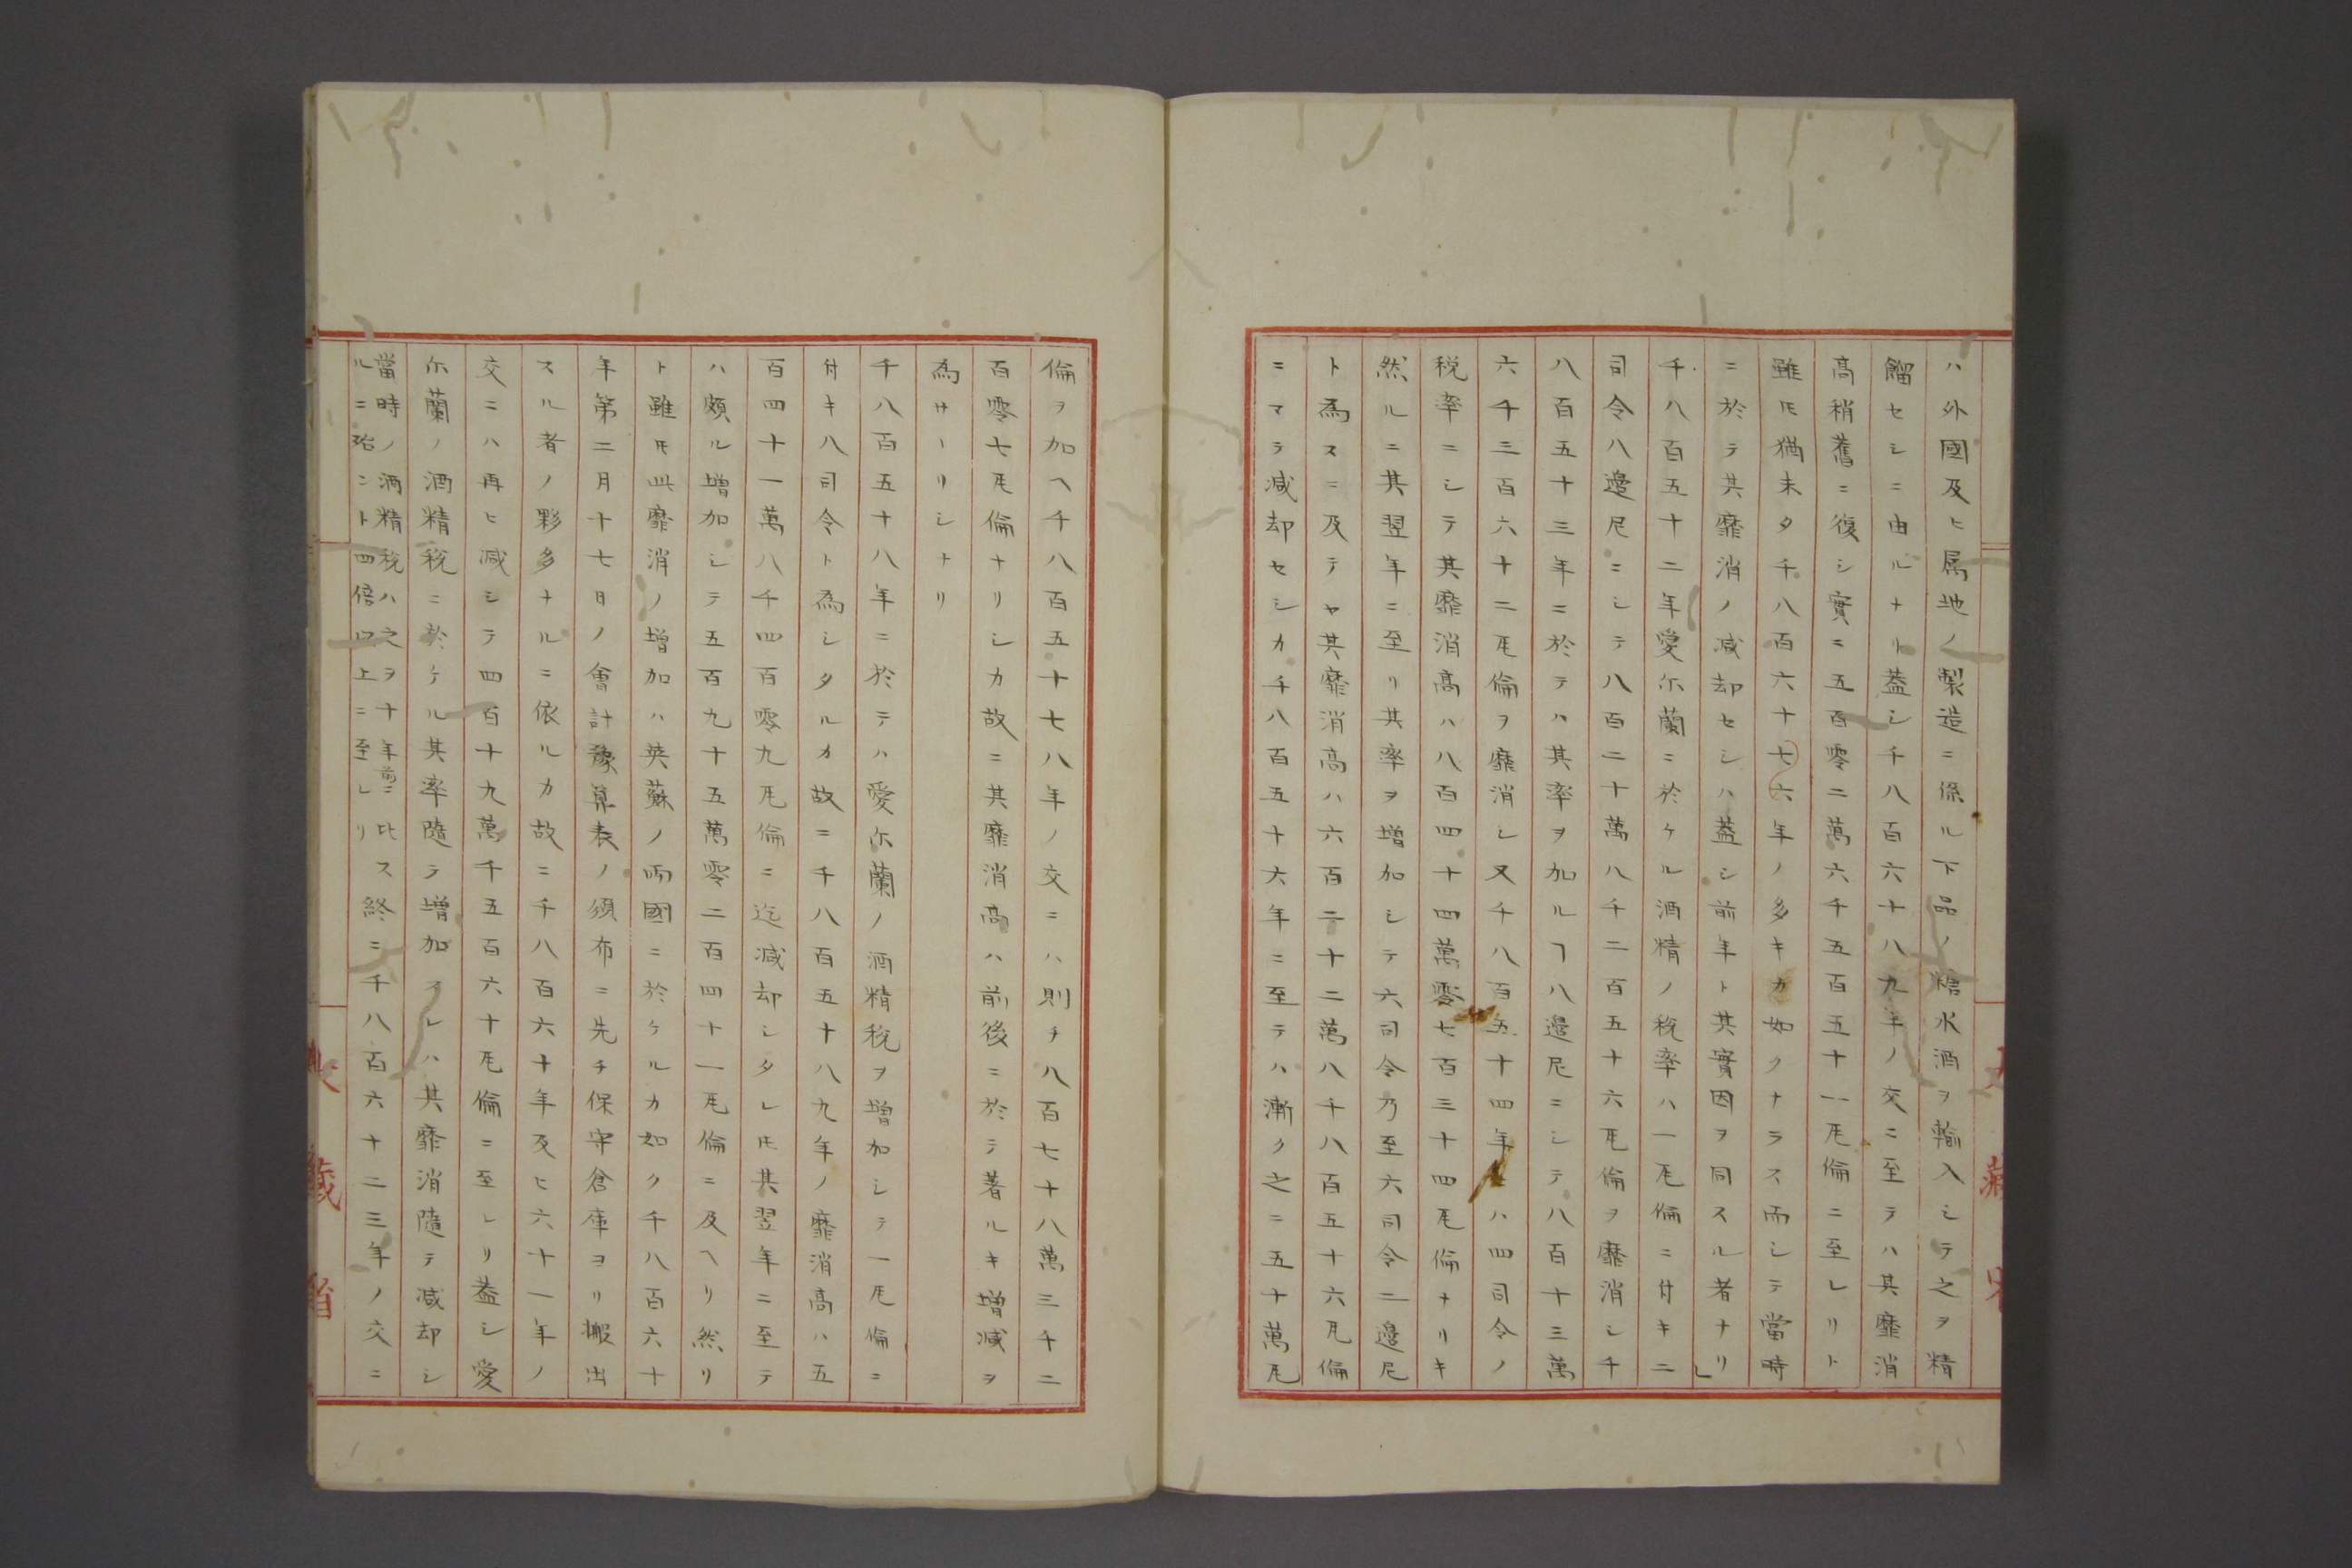 ハ外國及ヒ属地ノ製造ニ係ル下品ノ糖水酒ヲ輸入シテ之ヲ精
餾セシニ由ルナリ蓋シ千八百六十八九年ノ交ニ至テハ其靡消
高稍舊ニ復シ實ニ五百零二萬六千五百五十一瓦倫ニ至レリト
雖𪜈猶未タ千八百六十七六年ノ多キカ如クナラス而シテ當時
ニ於テ其靡消ノ减却セシハ蓋シ前年ト其實因ヲ同スル者ナリ」
千八百五十二年愛尓蘭ニ於ケル酒精ノ税率ハ一瓦倫ニ付キニ
司令八邉尼ニシテ八百二十萬八千二百五十六瓦倫ヲ靡消シ千
八百五十三年ニ於テハ其率ヲ加ルヿ八邉尼ニシテ八百十三萬
六千三百六十二瓦倫ヲ靡消シ又千八百五十四年ハ四司令ノ
税率ニシテ其靡消高ハ八百四十四萬零七百三十四瓦倫ナリキ
然ルニ其翌年ニ至リ其率ヲ増加シテ六司令乃至六司令二邉尼
ト為スニ及テヤ其靡消高ハ六百二十二萬八千八百五十六瓦倫
ニマテ减却セシカ千八百五十六年ニ至テハ漸ク之ニ五十萬瓦
倫ヲ加ヘ千八百五十七八年ノ交ニハ則チ八百七十八萬三千二
百零七瓦倫ナリシカ故ニ其靡消高ハ前後ニ於テ著ルキ増减ヲ
為サヽリシナリ
千八百五十八年ニ於テハ愛尓蘭ノ酒精税ヲ増加シテ一瓦倫ニ
付キ八司令ト為シタルカ故ニ千八百五十八九年ノ靡消高ハ五
百四十一萬八千四百零九瓦倫ニ迄减却シタレ𪜈其翌年ニ至テ
ハ頗ル増加シテ五百九十五萬零二百四十一瓦倫ニ及ヘリ然リ
ト雖𪜈此靡消ノ増加ハ英蘇ノ両國ニ於ケルカ如ク千八百六十
年第二月十七日ノ會計豫算表ノ頒布ニ先チ保守倉庫ヨリ搬出
スル者ノ夥多ナルニ依ルカ故ニ千八百六十年及ヒ六十一年ノ
交ニハ再ヒ减シテ四百十九萬千五百六十瓦倫ニ至レリ蓋シ愛
尓蘭ノ酒精税ニ於ケル其率隨テ増加スレハ其靡消隨テ减却シ
當時ノ酒精税ハ之ヲ十年前ニ比ス
ルニ殆ント四倍以上ニ至レリ
終ニ千八百六十二三年ノ交ニ
大藏省